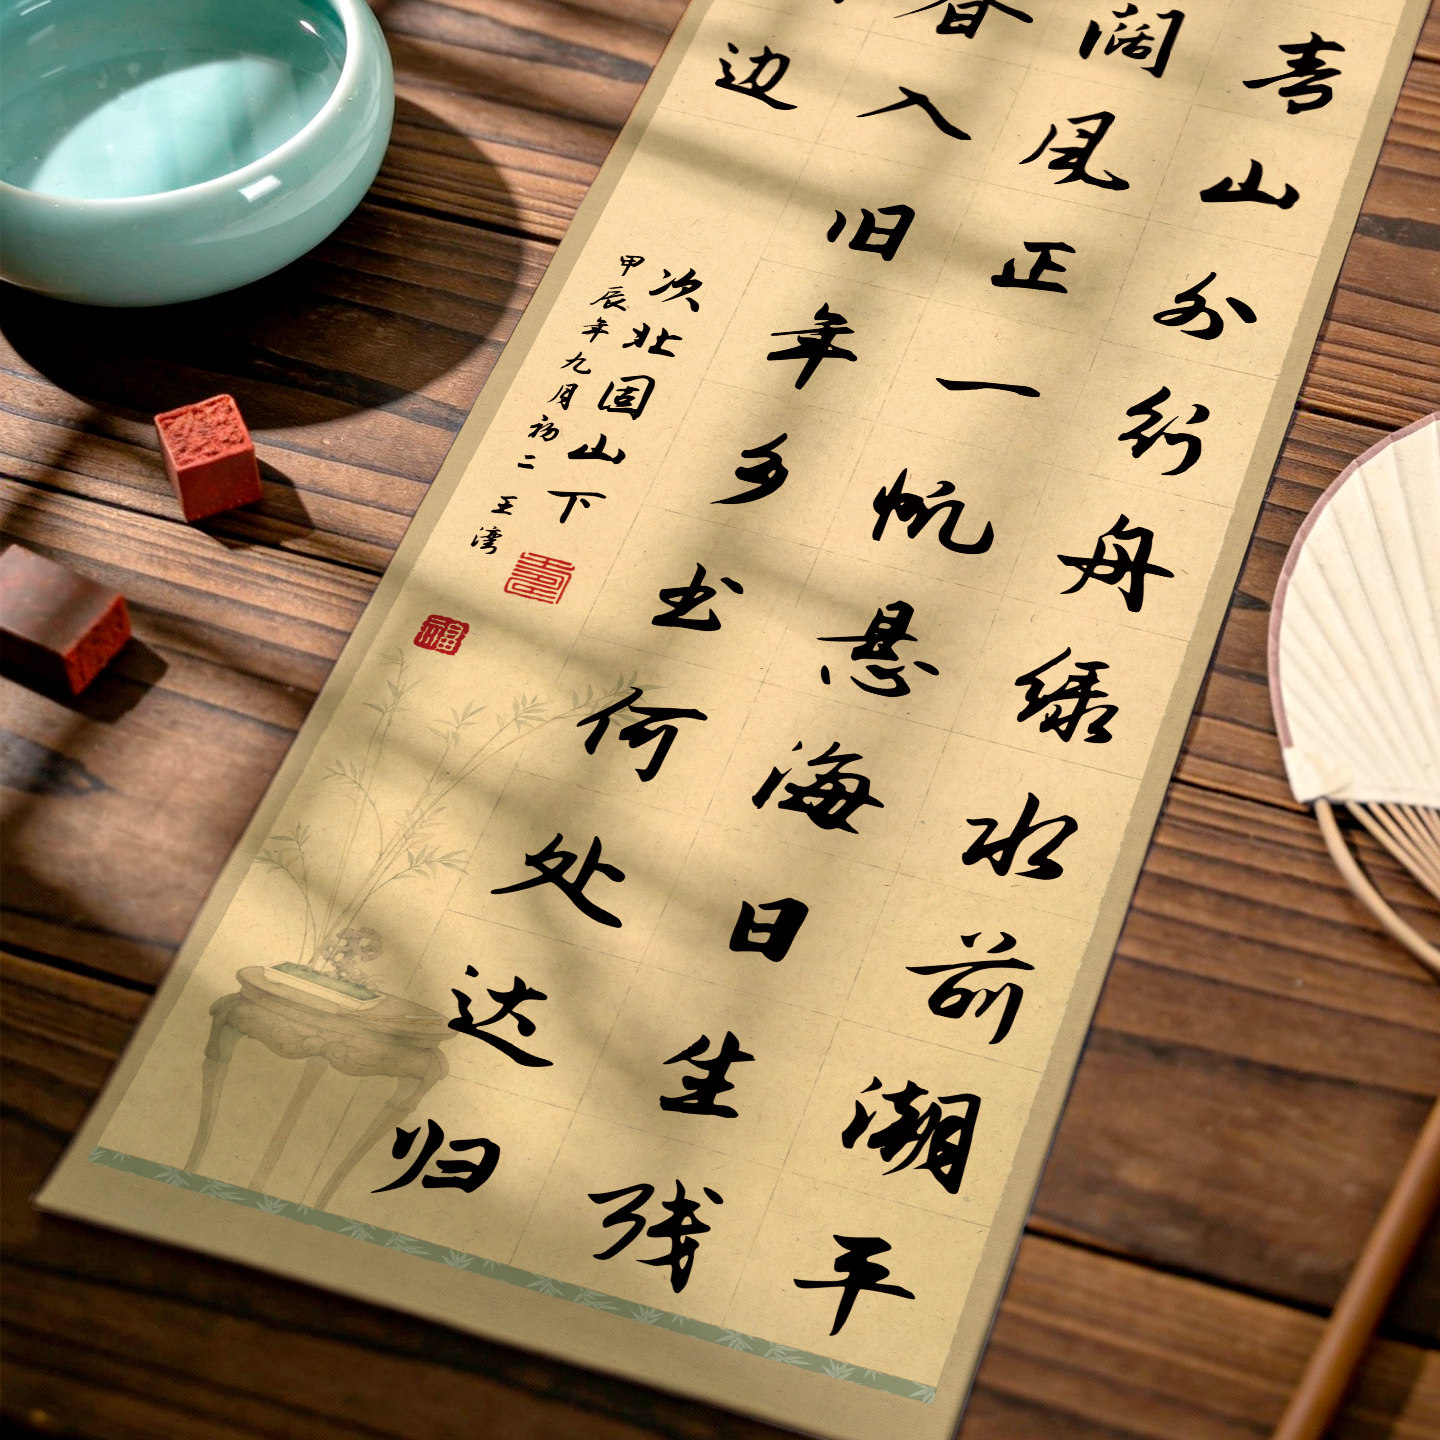 青山外行舟绿水前潮平
阔风正一帆悬海日生残
春入旧年乡书何处达归
边
次北固山下
甲辰年九月初二 王湾